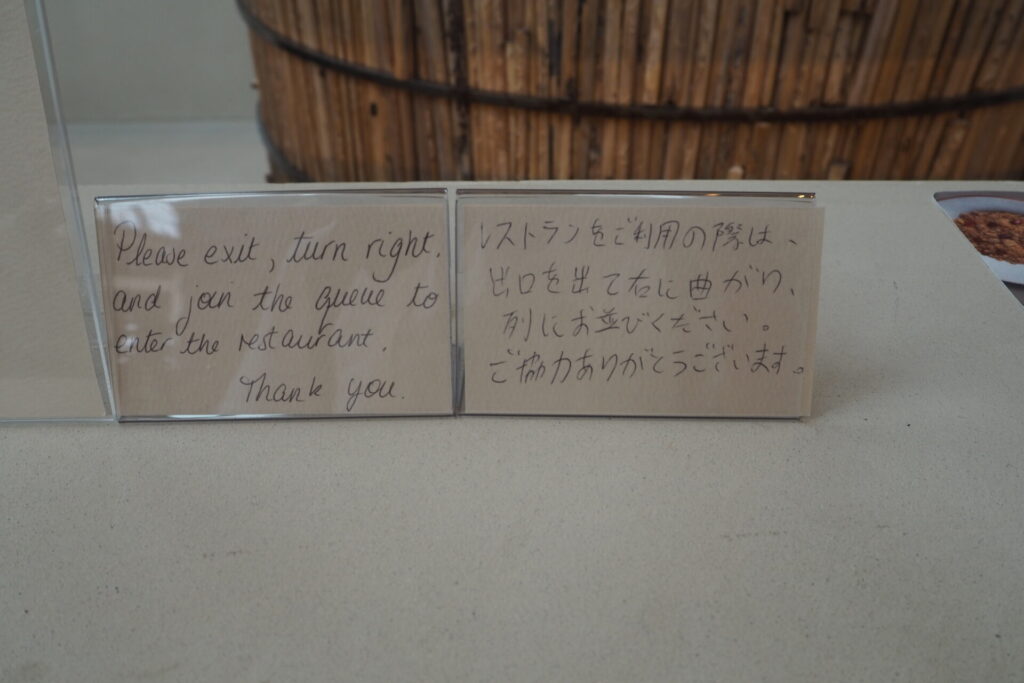 Please exit, turn right.
and join the queue to
enter the restaurant.
Thank you.
レストランをご利用の際は、
出口を出て右に曲がり、
列にお並びください。
ご協力ありがとうございます。